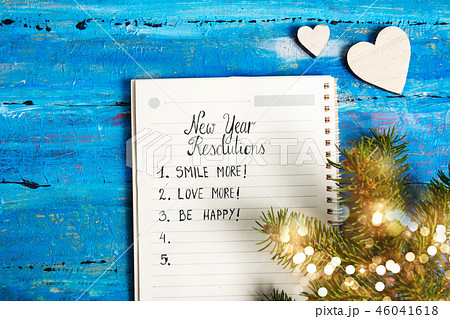 New Year
Resolutions
1. SMILE MORE!
2. LOVE MORE!
3. BE HAPPY!
4.
5.
pixta.jp - 46041618